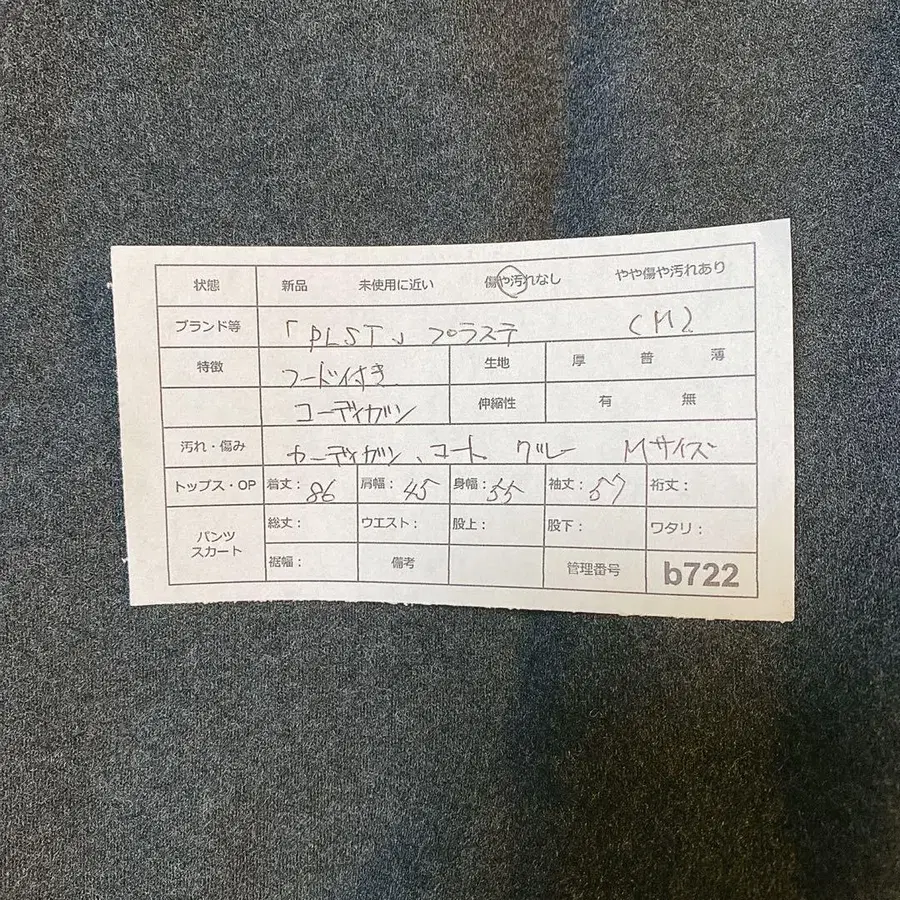 状態 新品 未使用に近い 傷や汚れなし やや傷や汚れあり
ブランド等 「PLST」プラステ (M)
特徴 フード付き 生地 厚 普 薄
コーディガン 伸縮性 有 無
汚れ・傷み カーディガン、コート グレー Mサイズ
トップス・OP 着丈: 86 肩幅: 45 身幅: 55 袖丈: 57 裄丈:
パンツ スカート 総丈: ウエスト: 股上: 股下: ワタリ:
裾幅: 備考 管理番号 b722